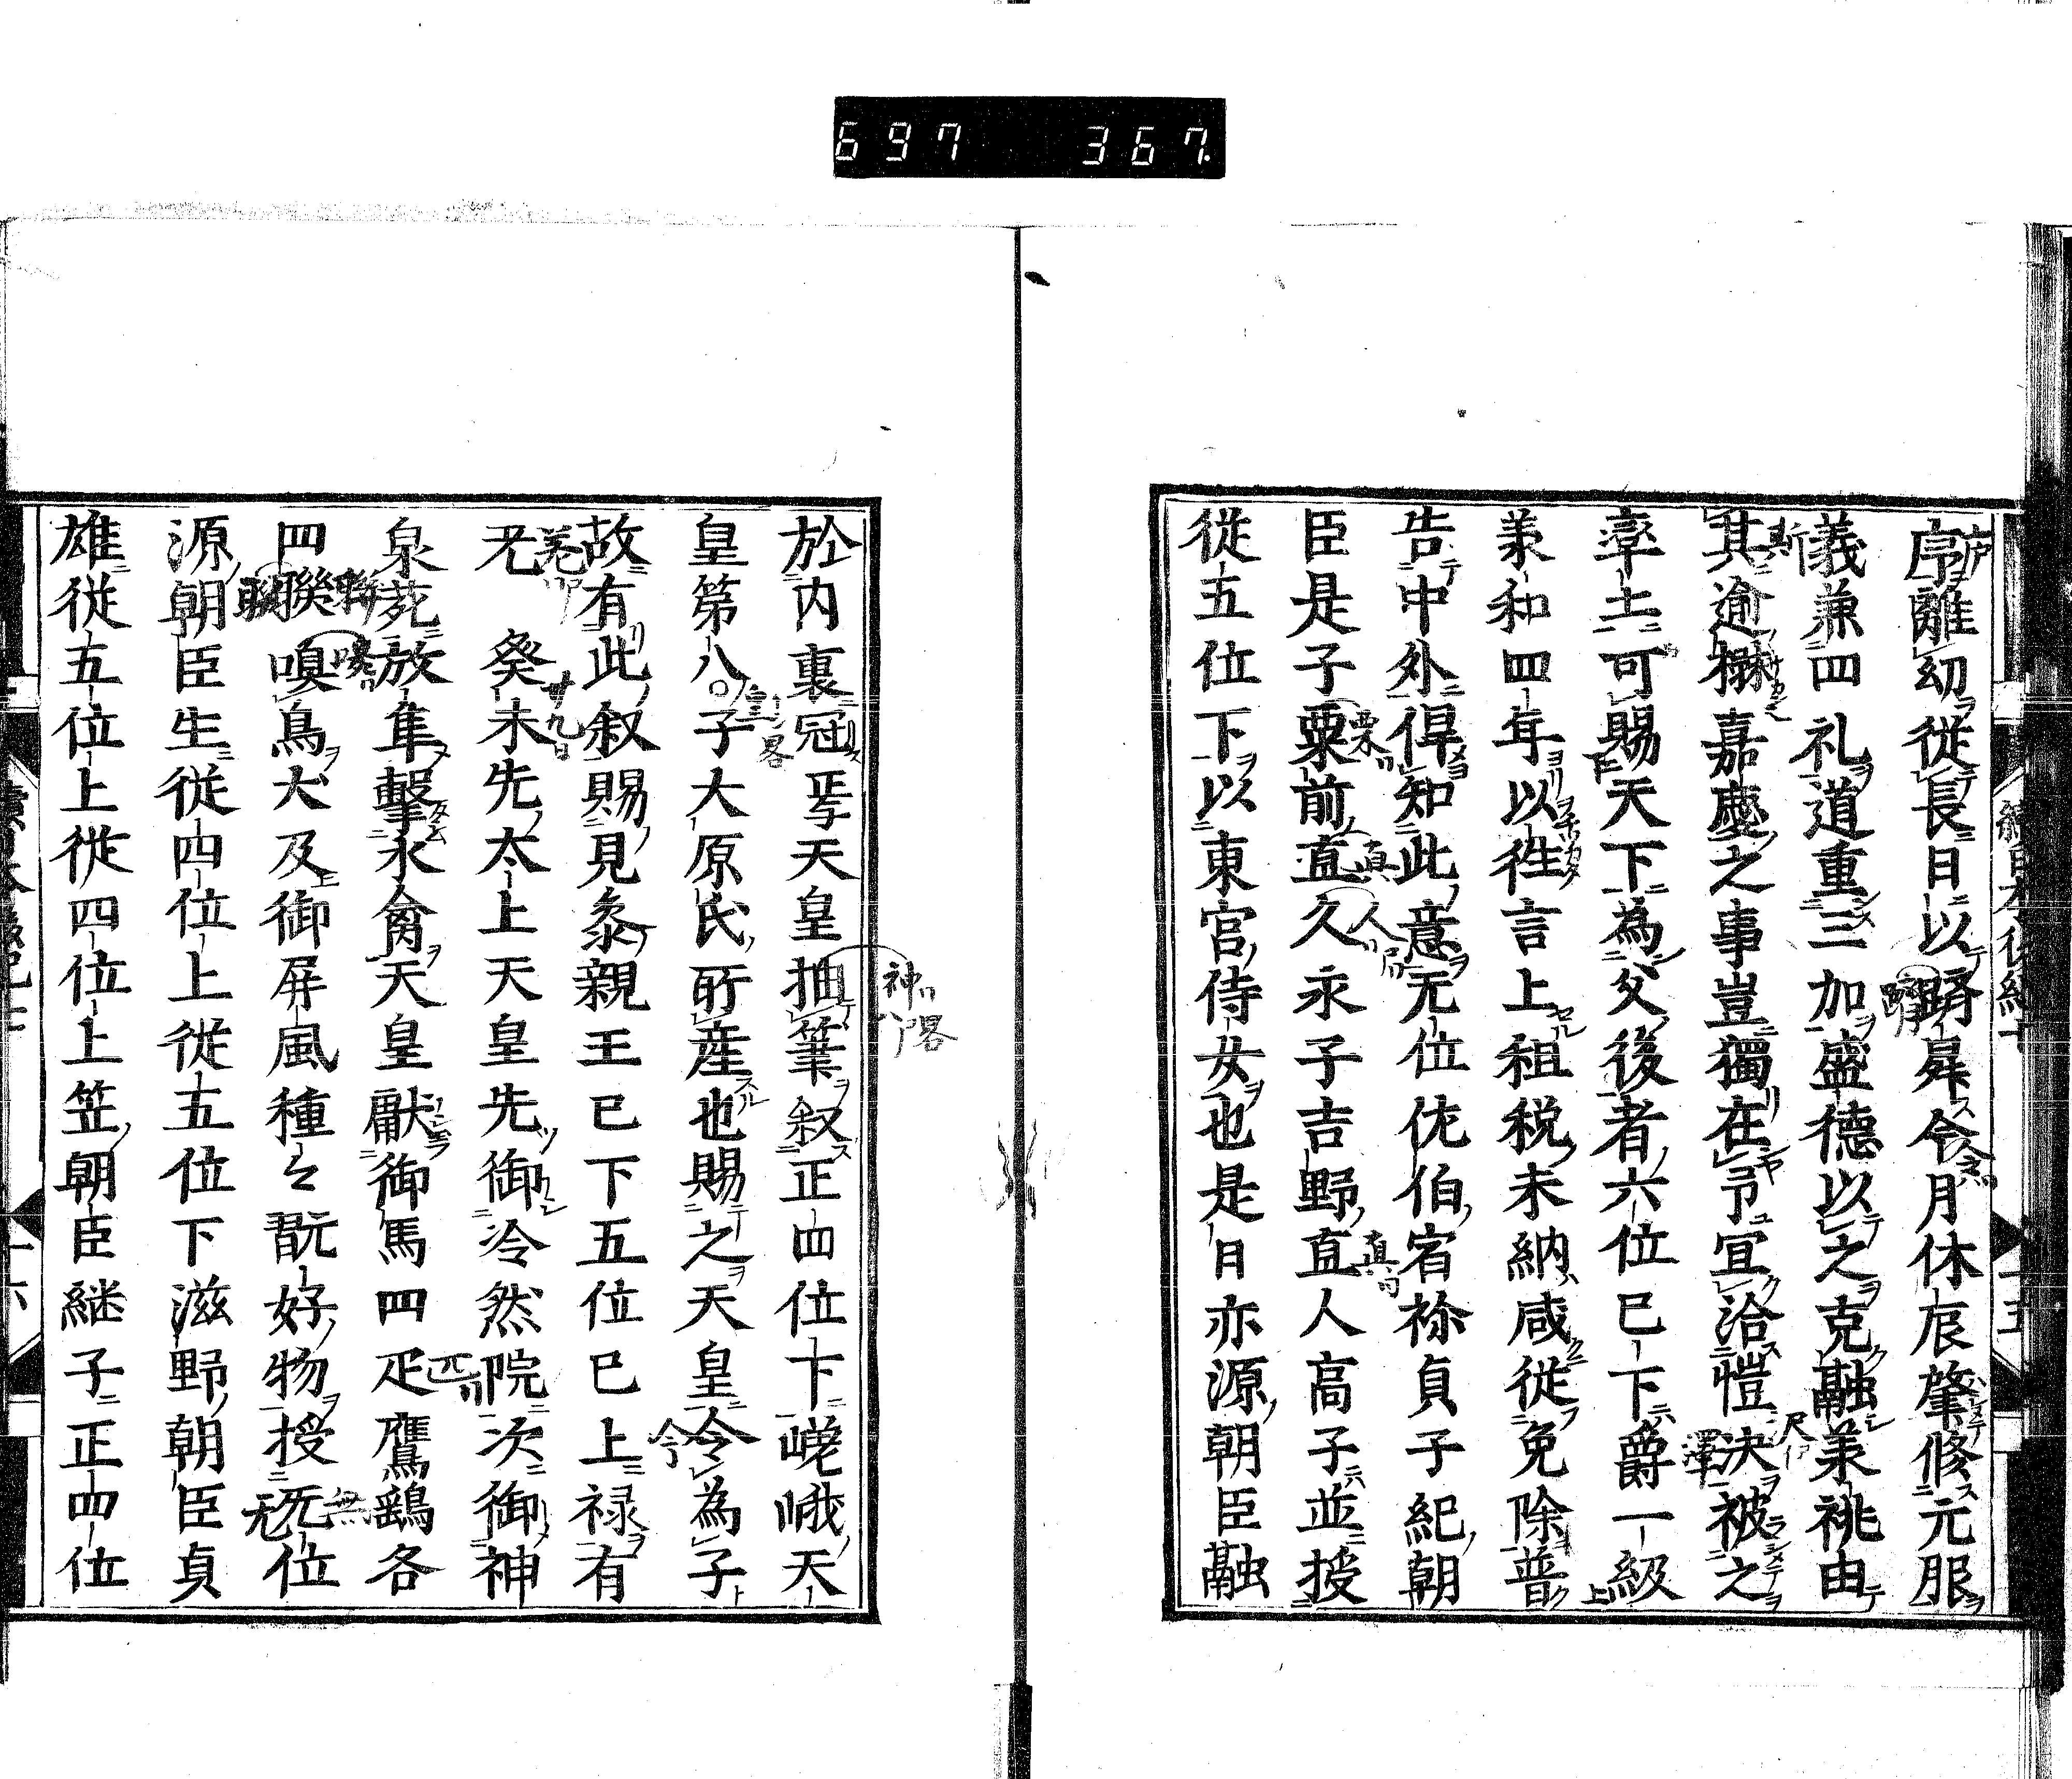 697 367.
序離幼従長日以躋曻令月休辰肇修元服
義兼四礼道重三加盛徳以之克融業祧由
其逾嘉慶之事豈獨在予宜洽愷決被之
率土可賜天下為父後者六位已下爵一級
羕和四年以徃言上租税未納咸従免除普
告中外俾知此意无位佐伯宿祢貞子紀朝
臣是子粟前直久永子吉野直人高子並授
従五位下以東宮侍女也是日亦源朝臣融
於内裏冠焉天皇抽筆叙正四位下嵯峨天
皇第八子大原氏所産也賜之天皇令為子
故有此叙賜見参親王已下五位已上禄有
差 癸未先太上天皇先御冷然院次御神
泉苑放隼擊水禽天皇獻御馬四疋鷹鷂各
四聯嗅鳥犬及御屏風種々翫好物授无位
源朝臣生従四位上従五位下滋野朝臣貞
雄従五位上従四位上笠朝臣継子正四位